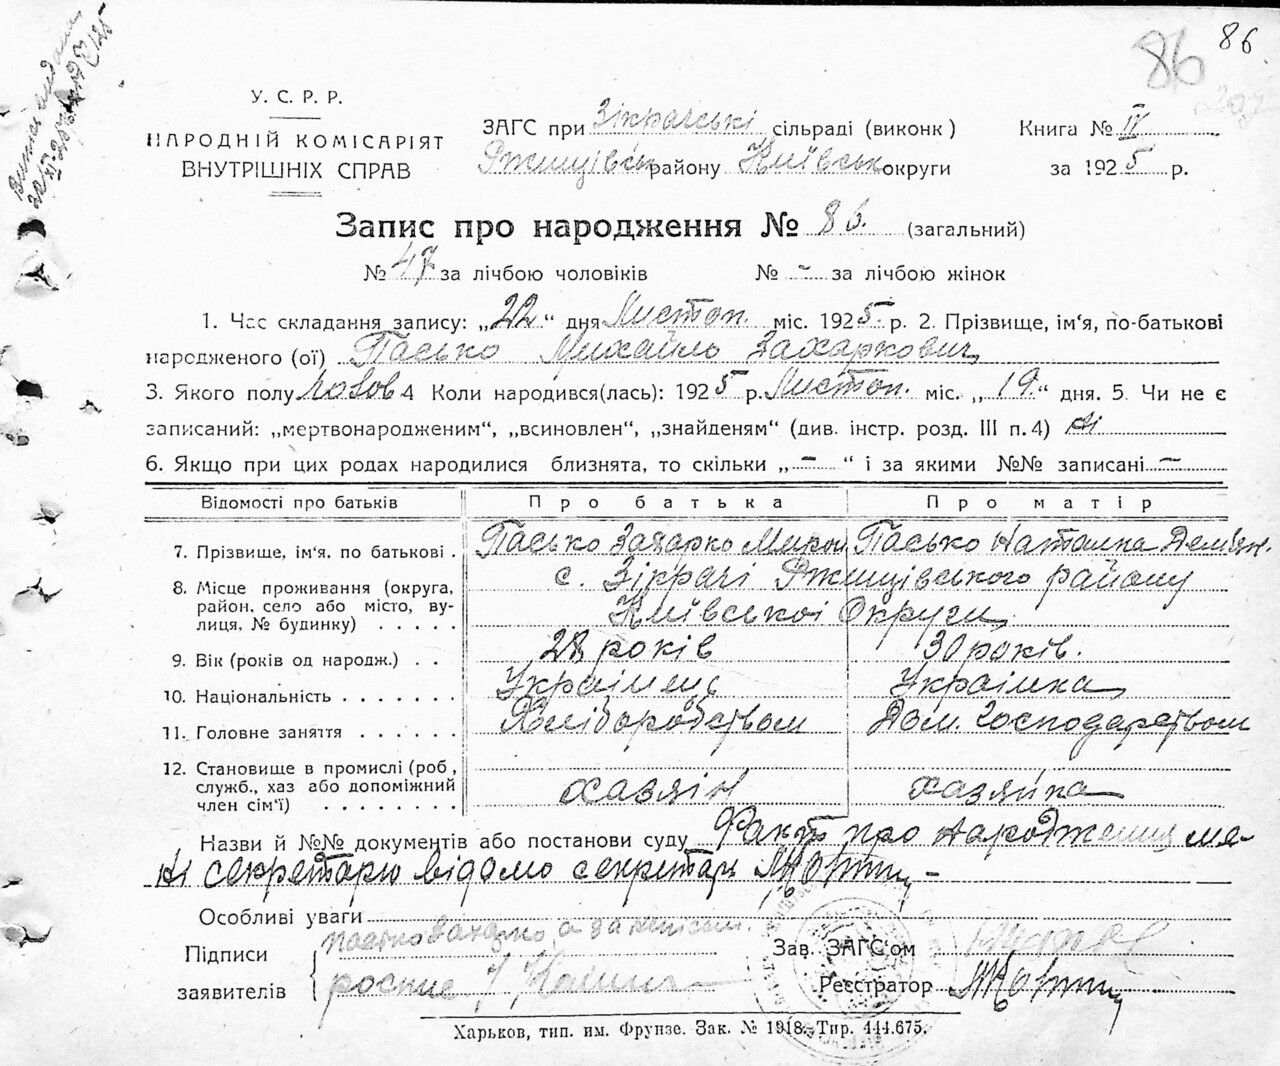 86
86
У. С. Р. Р.
НАРОДНІЙ КОМІСАРІЯТ
ВНУТРІШНІХ СПРАВ
ЗАГС при Зікрачські сільраді (виконк)
Ржищівськ району Київськ округи
Книга № IV
за 1925 р.
Запис про народження № 86. (загальний)
№ 47 за лічбою чоловіків № - за лічбою жінок
1. Час складання запису: „22" дня Листоп. міс. 1925 р. 2. Прізвище, ім'я, по-батькові
народженого (ої) Пасько Михайль Захаркович
3. Якого полу чолов 4 Коли народився(лась): 1925 р. Листоп. міс. „19" дня. 5. Чи не є
записаний: „мертвонародженим", „всиновлен", „знайденям" (див. інстр. розд. III п. 4) Ні
6. Якщо при цих родах народилися близнята, то скільки „-" і за якими №№ записані -
Відомості про батьків Про батька Про матір
7. Прізвище, ім'я, по батькові . Пасько Захарко Мирон Пасько Наталка Демьян.
8. Місце проживання (округа, район, село або місто, вулиця, № будинку) . . . . . с. Зікрачі Ржищівського району
Київської Округи
9. Вік (років од народж.) . . 28 років 30 років.
10. Національність . . . . . . . Українець Українка
11. Головне заняття . . . . . . Хліборобством Дом. Господарством
12. Становище в промислі (роб, служб., хаз або допоміжний член сім'ї) . . . . . . . . хазяін хазяйка
Назви й №№ документів або постанови суду Факт про народження ме-
ні секретарю відомо секретарь
Особливі уваги
Підписи
заявителів
Пасько Захарко а за
роспис
Зав. ЗАГС'ом
Реєстратор
Харьков, тип. им. Фрунзе. Зак. № 1918. Тир. 444.675.